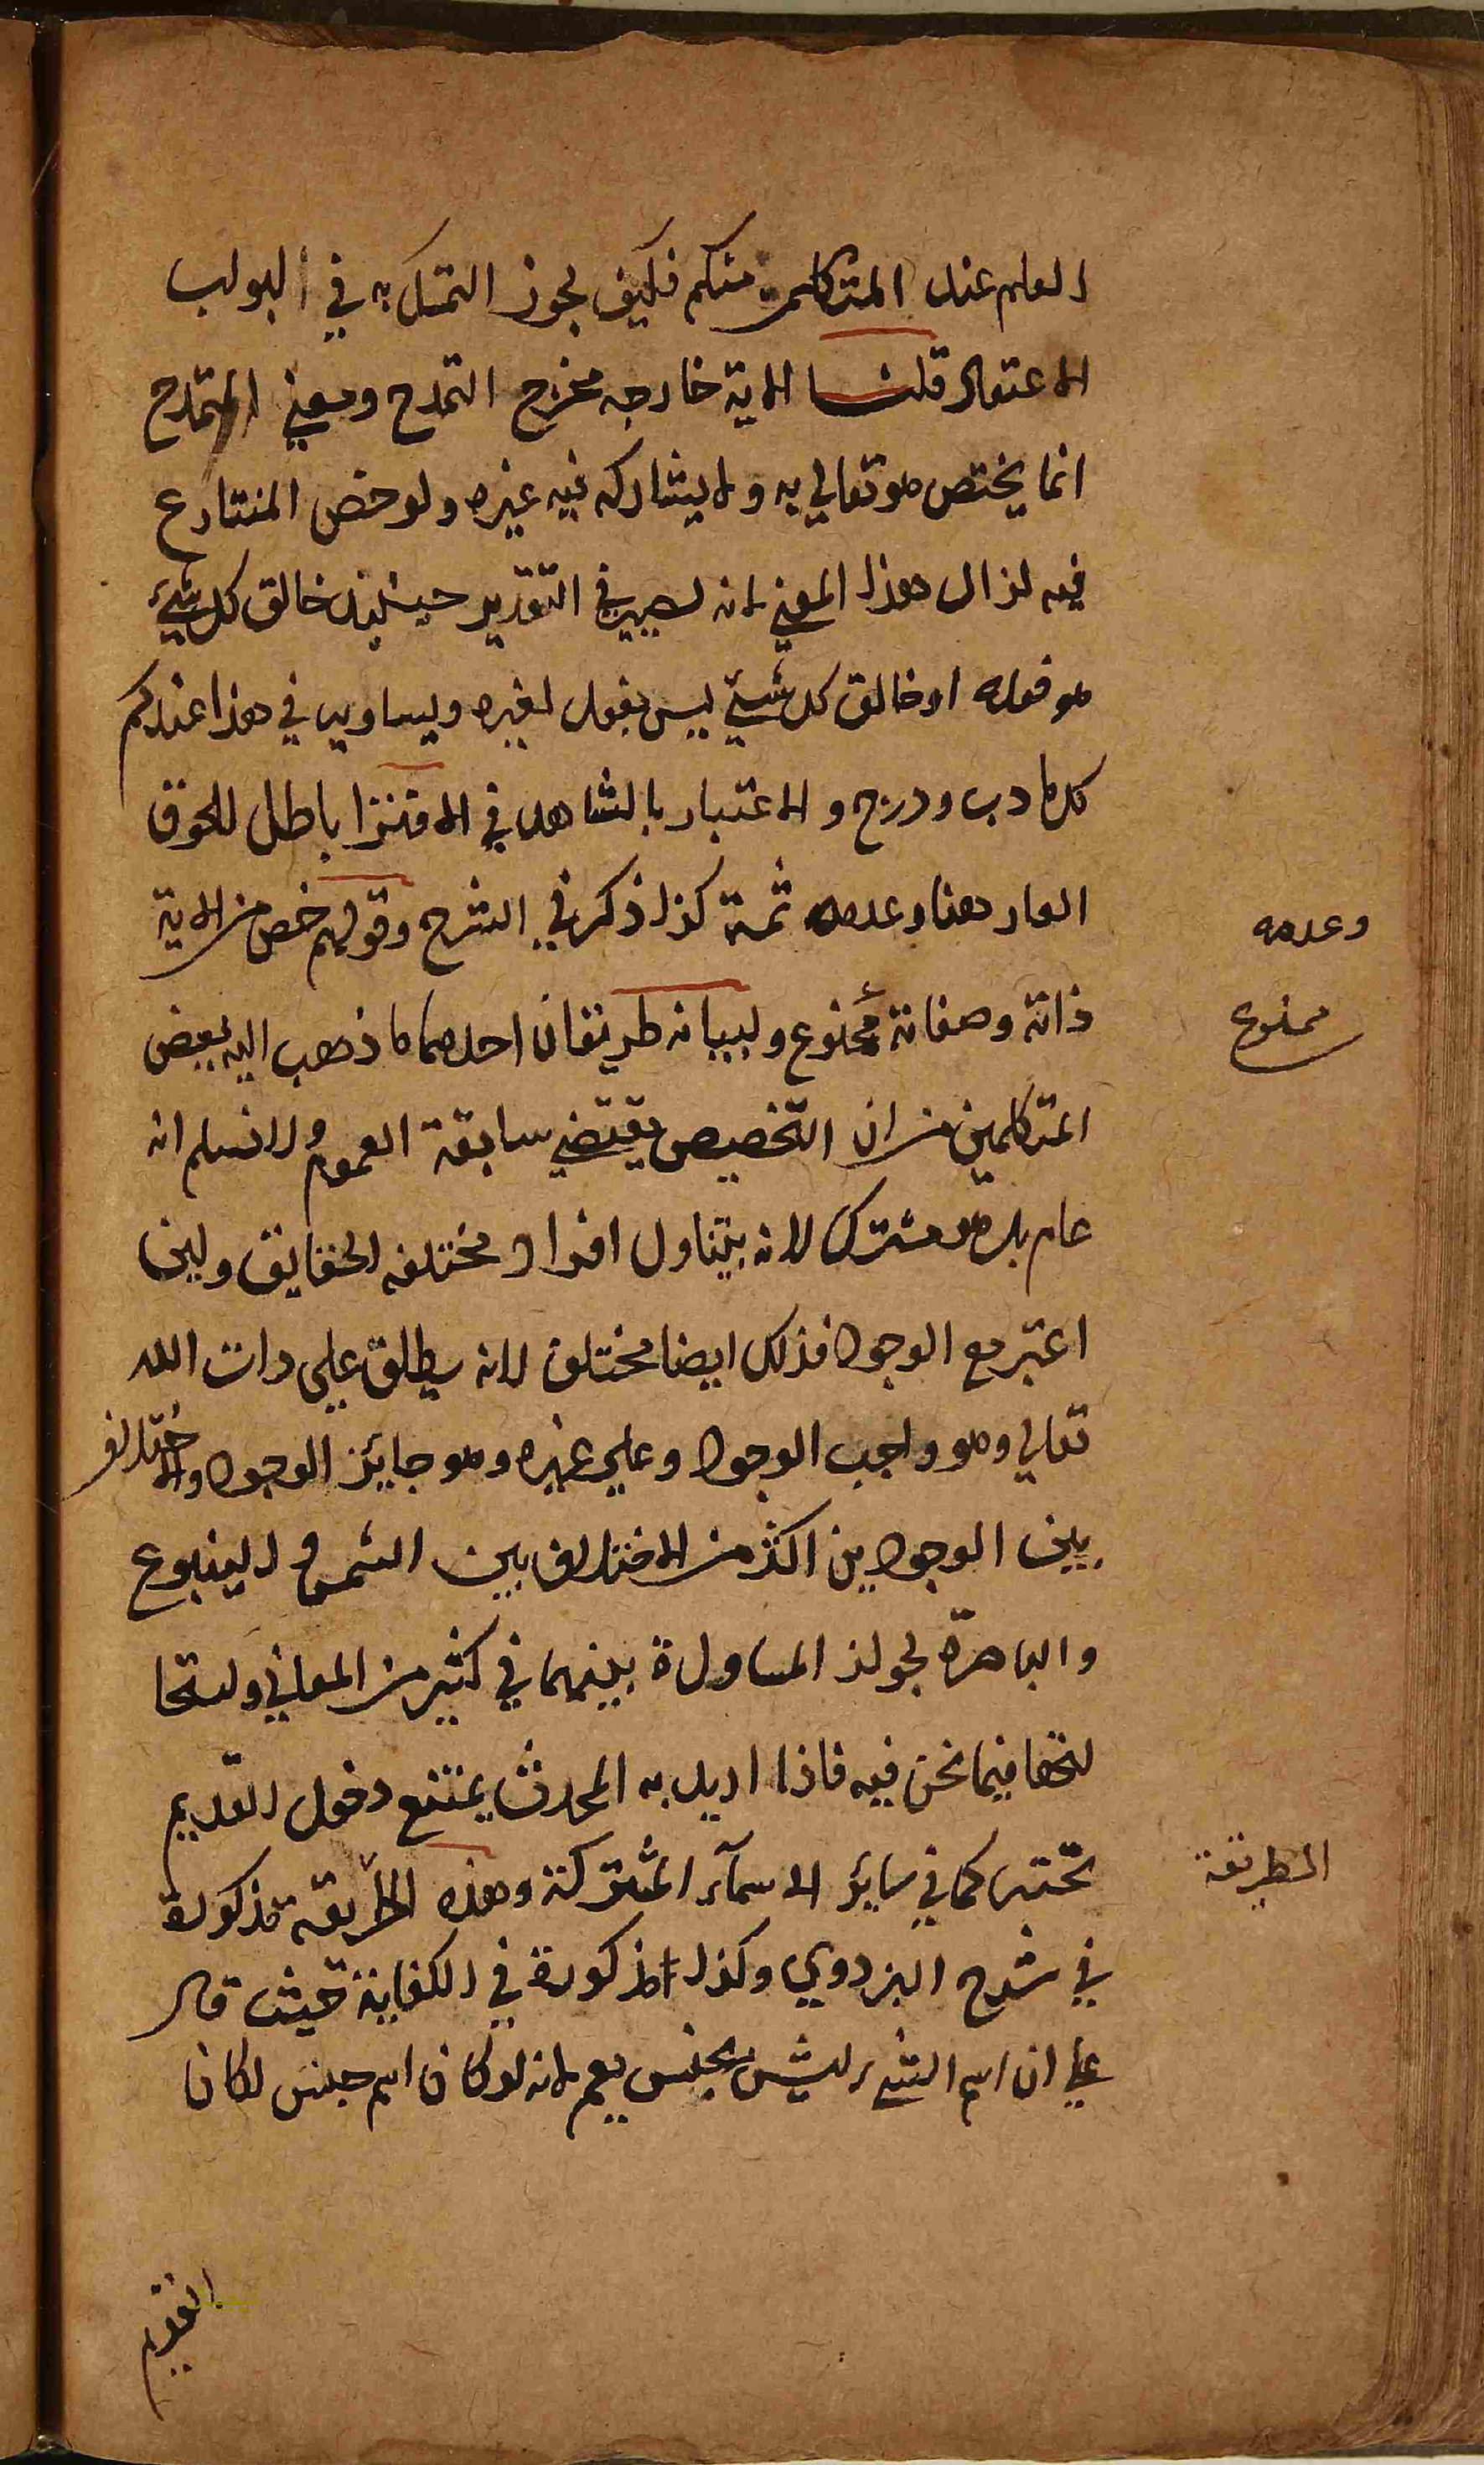 العلم عند المتكلمين منكم فكيف يجوز التمسك به في ابواب
الاعتقاد قلنا الاية خارجه مخرج التمدح ومعني التمدح
انما يختص هو تعالي به ولا يشاركه فيه غيره ولو خص المتنازع
فيه لزال هذا المعني لانه يصير في التقدير حينئذ خالق كل شيئ
هو فعله او خالق كل شيئ ليس بفعل لغيره ويساويه في هذا عندكم
كل ما دب ودرج والاعتبار بالشاهد في الافترا باطل للحوق
العار هنا وعدمه ثمة كذا ذكر في الشرح وقولهم خص من الاية
وعدمه
ذاته وصفاته ممنوع ولبيانه طريقان احدهما ما ذهب اليه بعض
ممنوع
المتكلمين من ان التخصيص يقتضي سابقة العموم ولا نسلم انه
عام بل هو مشترك لانه يتناول افرادا مختلفه الحقايق ولين
اعتبر مع الوجود فذلك ايضا مختلف لانه يطلق علي ذات الله
تعالي وهو واجب الوجود وعلي غيره وهو جايز الوجود والاختلاف
بين الوجودين اكثر من الاختلاف بين الشمس والينبوع
والباصرة لجواز المساواة بينهما في كثير من المعاني واستحا
لتها فيما نحن فيه فاذا اريد به المحدث يمتنع دخول القديم
تحته كما في سائر الاسمآء المشتركة وهذه الطريقة مذكورة
الطريقة
في شرح البزدوي وكذا مذكورة في الكفاية حيث قال
علي ان اسم الشيء ليس بجنس يعم لانه لو كان اسم جنس لكان
القديم